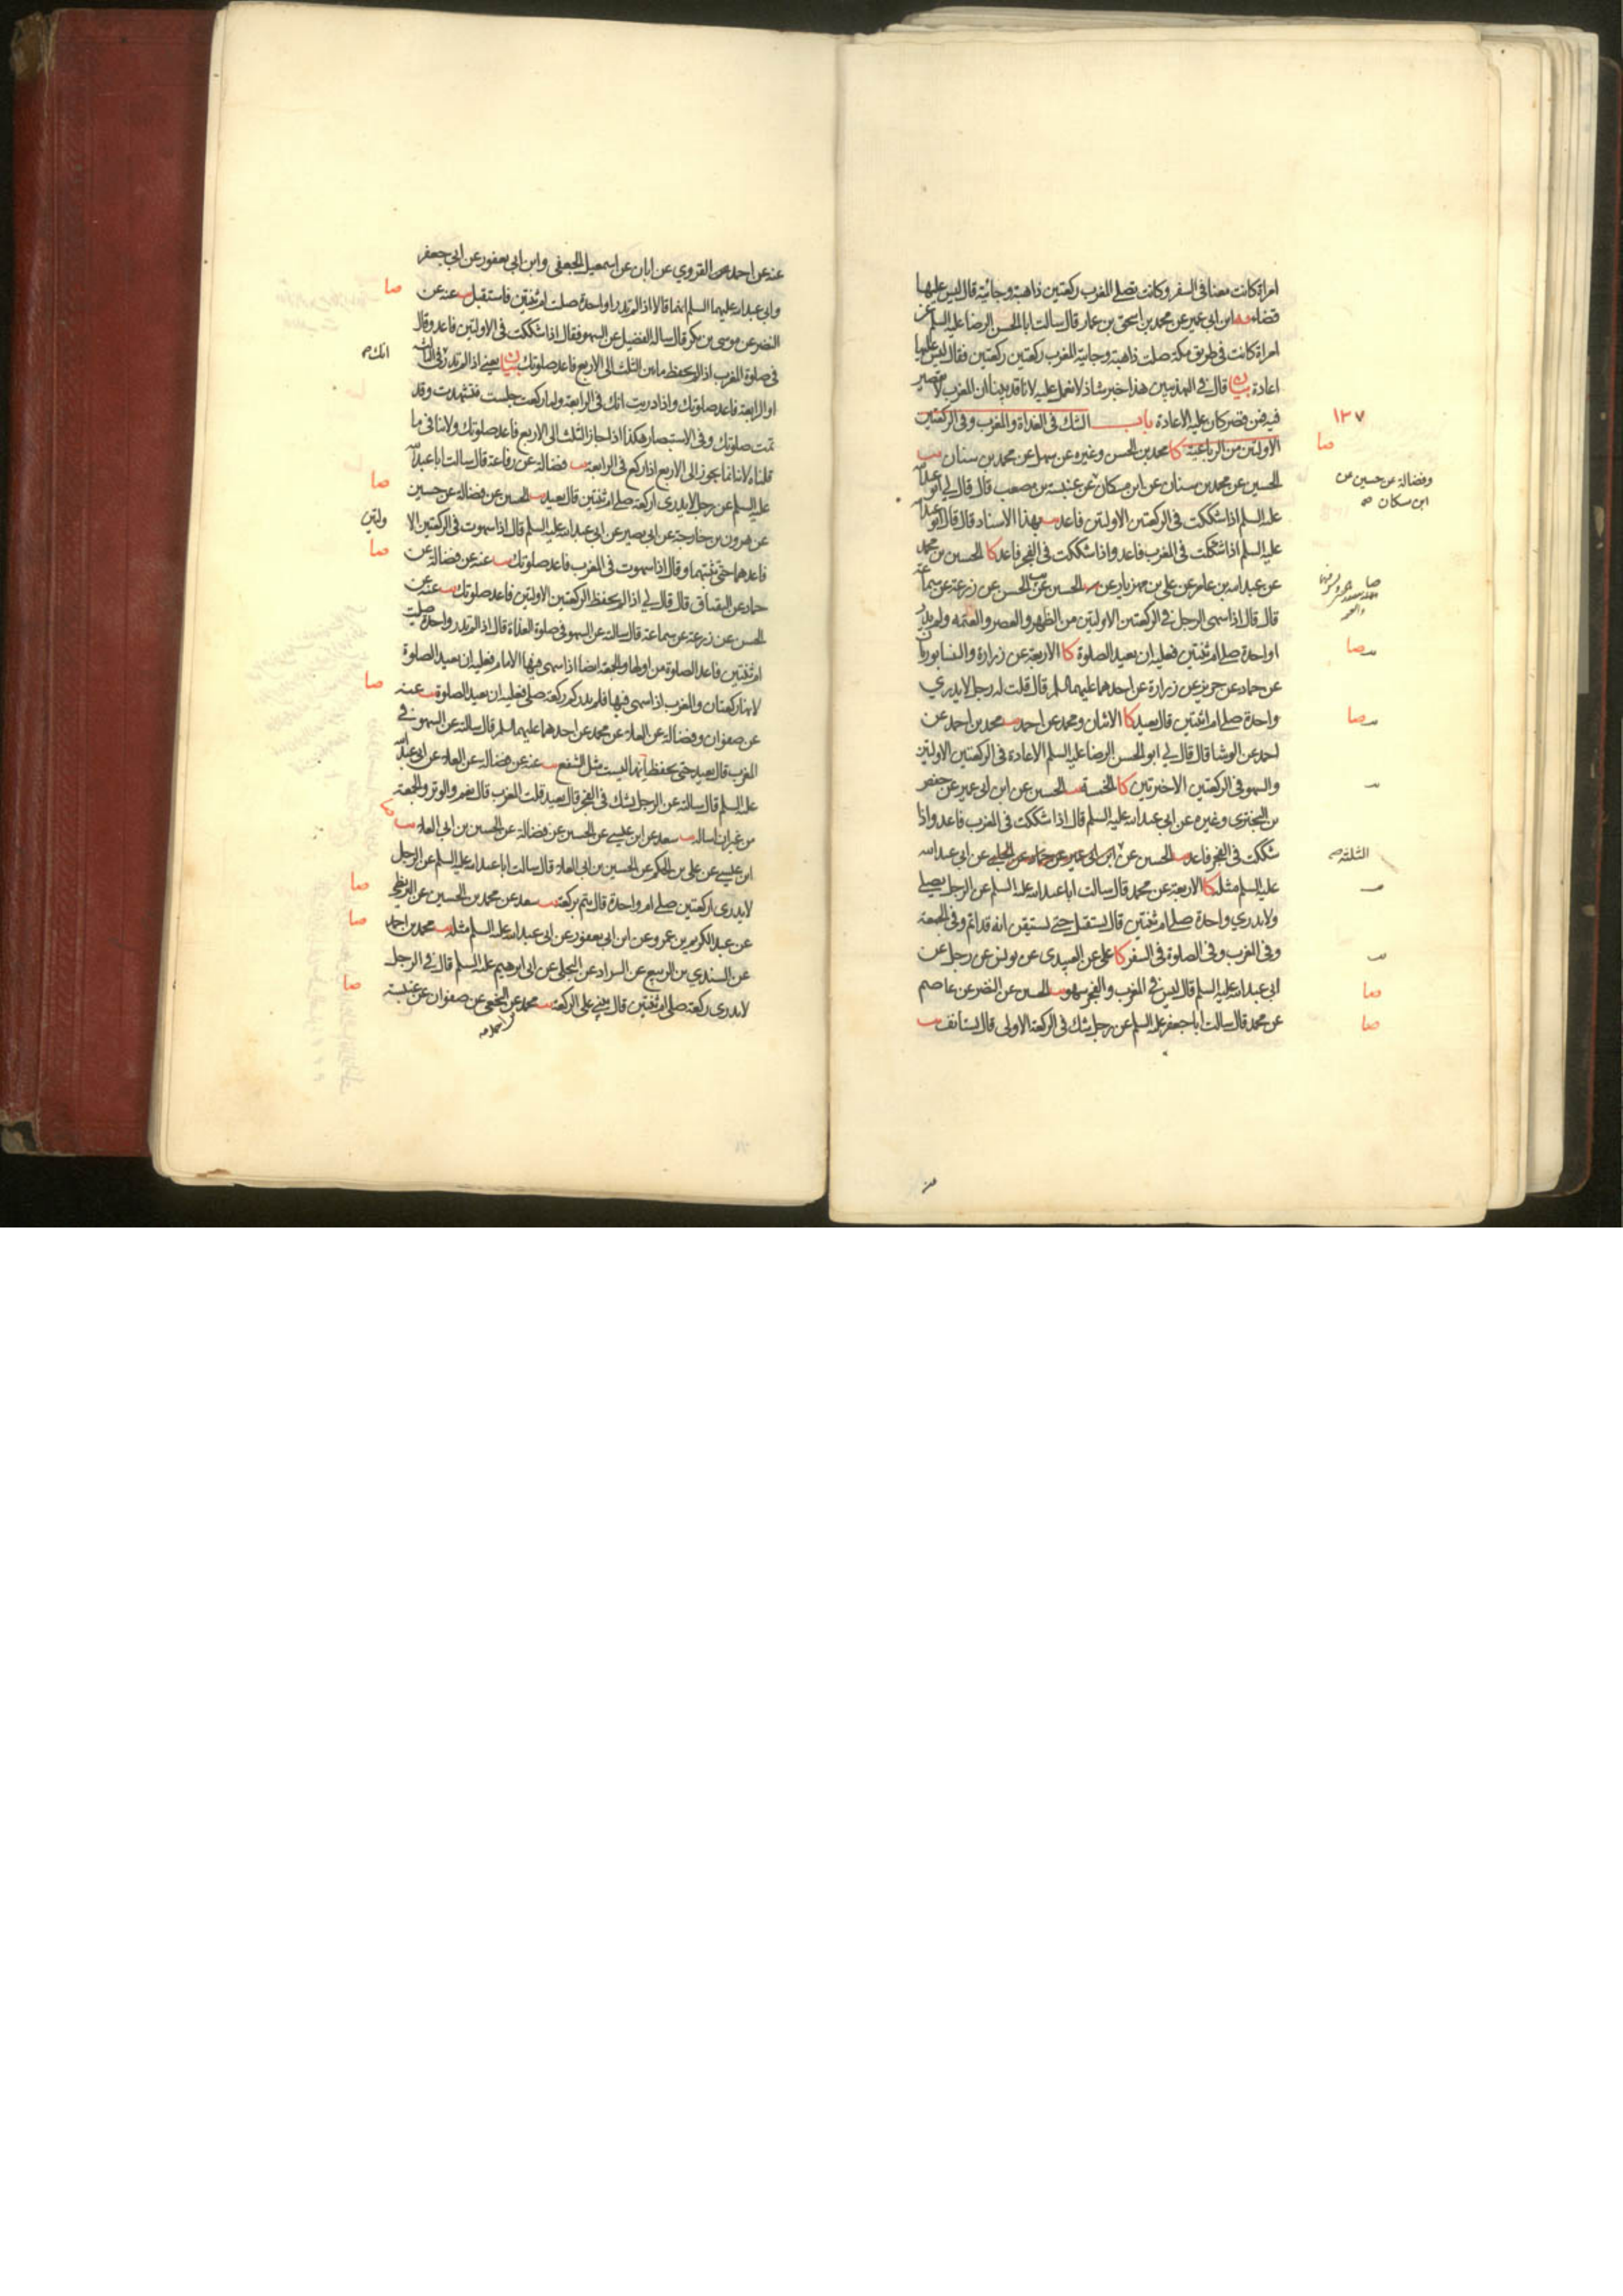 امراة كانت معنا في السفر وكانت تصلي المغرب ركعتين ذاهبة وجائية قال ليس عليها
قضاء ابن ابي عمير عن محمد بن اسحق بن عمار قال سالت ابا الحسن الرضا عليه السلم عن
امراة كانت في طريق مكة صلت ذاهبة وجائية المغرب ركعتين ركعتين فقال ليس عليها
اعادة بيان قال في التهذيبين هذا خبر شاذ لا نعمل عليه لانا قد بينا ان المغرب لا تقصير
فيه فمن قصر كان عليه الاعادة باب الشك في الغداة والمغرب وفي الركعتين
١٣٧
الاولتين من الرباعية كا محمد بن الحسن وغيره عن سهل عن محمد بن سنان يب
صا
الحسين عن محمد بن سنان عن ابن مسكان عن عنبسة بن مصعب قال قال لي ابو عبدالله
وفضالة عن حسين عن
ابن مسكان
عليه السلم اذا شككت في الركعتين الاولتين فاعد يب بهذا الاسناد قال قال ابو عبدالله
عليه السلم اذا شككت في المغرب فاعد واذا شككت في الفجر فاعد كا الحسين بن محمد
عن عبدالله بن عامر عن علي بن مهزيار عن الحسين عن الحسن عن زرعة عن سماعة
قال قال اذا سهى الرجل في الركعتين الاولتين من الظهر والعصر والعتمة ولم يدر
اواحدة صلى ام ثنتين فعليه ان يعيد الصلوة كا الاربعة عن زرارة والنيسابوريان
عن حماد عن حريز عن زرارة عن احدهما عليهما السلم قال قلت له رجل لا يدري
واحدة صلى ام اثنتين قال يعيد كا الاثنان ومحمد عن احمد يب محمد بن احمد عن
احمد عن الوشا قال قال لي ابو الحسن الرضا عليه السلم الاعادة في الركعتين الاولتين
والسهو في الركعتين الاخيرتين كا الخمسة يب الحسين عن ابن ابي عمير عن حفص
بن البختري وغيره عن ابي عبدالله عليه السلم قال اذا شككت في المغرب فاعد واذا
شككت في الفجر فاعد يب الحسين عن ابن ابي عمير عن حماد عن الحلبي عن ابي عبدالله
الثلثة
عليه السلم مثله كا الاربعة عن محمد قال سالت ابا عبدالله عليه السلم عن الرجل يصلي
ولا يدري واحدة صلى ام ثنتين قال يستقبل حتى يستيقن انه قد اتم وفي الجمعة
وفي المغرب وفي الصلوة في السفر كا علي عن العبيدي عن يونس عن رجل عن
ابي عبدالله عليه السلم قال ليس في المغرب والفجر سهو يب الحسين عن النضر عن عاصم
صا
عن محمد قال سالت ابا جعفر عليه السلم عن رجل شك في الركعة الاولى قال يستانف يب
صا
عنه عن احمد عن القروي عن ابان عن اسمعيل الجعفي وابن ابي يعفور عن ابي جعفر
وابي عبدالله عليهما السلم انهما قالا اذا لم تدر اواحدة صلت ام ثنتين فاستقبل يب عنه عن
صا
النضر عن موسى بن بكر قال ساله الفضيل عن السهو فقال اذا شككت في الاولتين فاعد وقال
في صلوة المغرب اذا لم تحفظ ما بين الثلث الى الاربع فاعد صلوتك بيان يعني اذا لم تدر في الثالثة
انك
او الرابعة فاعد صلوتك واذا دريت انك في الرابعة ولما ركعت جلست فتشهدت وقد
تمت صلوتك وفي الاستبصار هكذا اذا جاز الثلث الى الاربع فاعد صلوتك ولا ينافي ما
قلناه لانا انما يجوز الى الاربع اذا ركع في الرابعة يب فضالة عن رفاعة قال سالت ابا عبدالله
عليه السلم عن رجل لا يدري اركعة صلى ام ثنتين قال يعيد يب الحسين عن فضالة عن حسين
صا
عن هرون بن خارجة عن ابي بصير عن ابي عبدالله عليه السلم قال اذا سهوت في الركعتين الا
ولتين
فاعدهما حتى تثبتهما وقال اذا سهوت في المغرب فاعد صلوتك يب عنه عن فضالة عن
صا
حماد عن البقباق قال قال لي اذا لم تحفظ الركعتين الاولتين فاعد صلوتك يب عنه عن
الحسن عن زرعة عن سماعة قال سالته عن السهو في صلوة الغداة قال اذا لم تدر واحدة صليت
ام ثنتين فاعد الصلوة من اولها والجمعة ايضا اذا سهى فيها الامام فعليه ان يعيد الصلوة
لانها ركعتان والمغرب اذا سهى فيها فلم يدر كم ركعة صلى فعليه ان يعيد الصلوة يب عنه
صا
عن صفوان وفضالة عن العلا عن محمد عن احدهما عليهما السلم قال سالته عن السهو في
المغرب قال يعيد حتى يحفظ انها ليست مثل الشفع يب عنه عن فضالة عن العلا عن ابي عبدالله
عليه السلم قال سالته عن الرجل يشك في الفجر قال يعيد قلت المغرب قال نعم والوتر والجمعة
من غير ان اساله يب سعد عن ابن عيسى عن الحسين عن فضالة عن الحسين بن ابي العلا يب
ابن عيسى عن علي بن الحكم عن الحسين بن ابي العلا قال سالت ابا عبدالله عليه السلم عن الرجل
لا يدري اركعتين صلى ام واحدة قال يتم بركعة يب سعد عن محمد بن الحسين عن البزنطي
صا
عن عبد الكريم بن عمرو عن ابن ابي يعفور عن ابي عبدالله عليه السلم مثله يب محمد بن احمد
صا
عن السندي بن الربيع عن السراد عن البجلي عن ابي ابرهيم عليه السلم قال في الرجل
لا يدري ركعة صلى ام ثنتين قال يبني على الركعة يب محمد عن النخعي عن صفوان عن عنبسة
صا